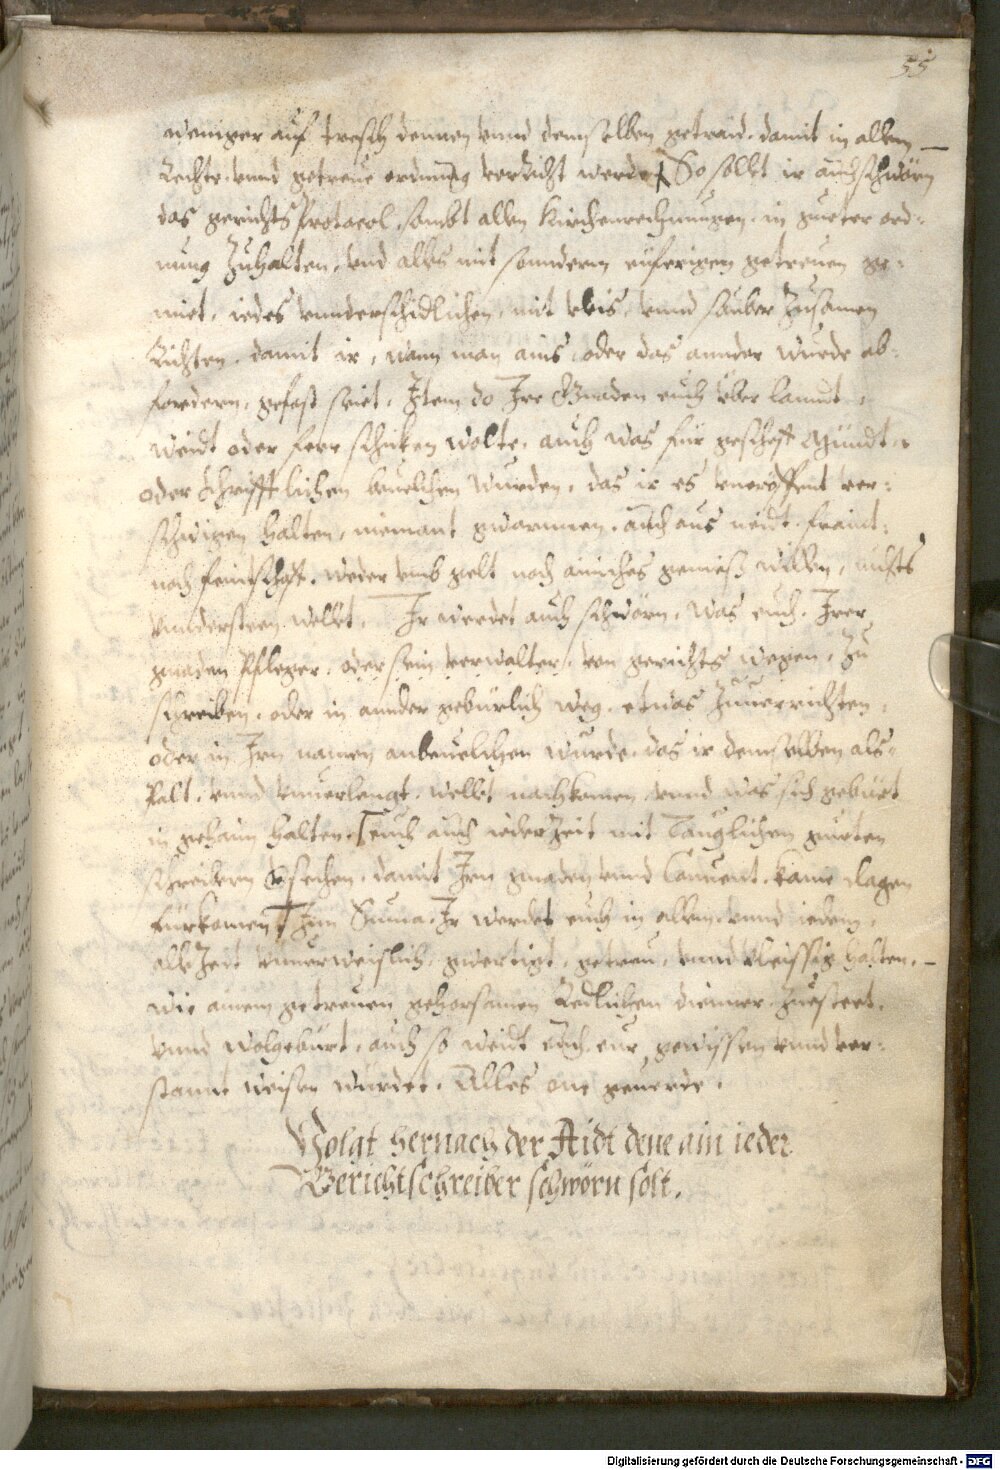 55
weniger auf tresch dennen vnnd demselben getraid, damit in allem
Rechte vnnd getreue ordnung verricht werde, So sollet ir auch schwörn
das gerichts Protocol, sambt allen Kirchenrechnungen, in gueter ord-
nung Zuhalten, vnd alles mit sonnderm eüferigen getreuen ge-
müet, iedes vnnderschidlichen, mit vleis, vnnd sauber Zusamen
Richten, damit ir, wann man ains oder das annder wurde ab-
fordern, gefast seiet, Item do Ire Gnaden euch über lanndt
weidt oder ferr schicken wolte, auch was für gescheft Mündt-
oder Schrifftlichen beuelchen wurden, das ir es vneröffent ver-
schwigen halten, niemant zwarnnen, auch aus neidt, freint-
noch feindtschafft, weder vmb gelt noch ainiches geniess willen, nichts
vnndersteen wellet, Ir werdet auch schwörn, was euch Irer
gnaden Pfleger, oder sein verwalter, von gerichts wegen, Zu
schreiben, oder in annder gebürlich weg, etwas Zuuerrichten,
oder in Irn namen anbeuelchen wurde, das ir demselben als-
balt, vnnd vnuerlengt, wellet nachkomen, vnnd was sich gebürt
in gehaim halten, euch auch ieder Zeit mit Tauglichen gueten
schreibern versechen, damit Irn gnaden vnnd Conuent, kaine clagen
fürkomen, Inn Suma, Ir werdet euch in allem vnnd iedem,
alle Zeit vnuerweislich, gwertigt, getreu, vnnd vleissig halten,
wie ainem getreuen gehorsamen Redlichen dienner Zuesteet,
vnnd wolgebürt, auch so weidt euch eur gewissen vnnd ver-
stannt weisen wurdet, Alles one geuerde.
Volgt hernach der Aidt dene ain ieder
Gerichtschreiber schwörn solt.
Digitalisierung gefördert durch die Deutsche Forschungsgemeinschaft - DFG